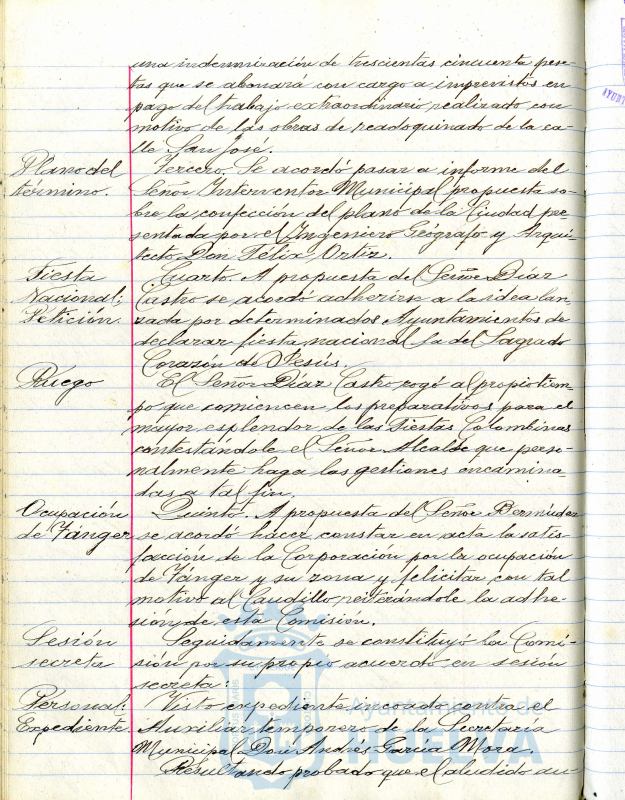 una indemnización de trescientas cincuenta pese-
tas que se abonará con cargo a imprevistos en
pago del trabajo extraordinario realizado con
motivo de las obras de readoquinado de la ca-
lle San José.
Plano del
término.
Tercero. Se acordó pasar a informe del
Señor Interventor Municipal propuesta so-
bre la confección del plano de la Ciudad pre-
sentada por el Ingeniero Geógrafo y Arqui-
tecto Don Félix Ortiz.
Fiesta
Nacional;
Petición.
Cuarto. A propuesta del Señor Díaz
Castro se acordó adherirse a la idea lan-
zada por determinados Ayuntamientos de
declarar fiesta nacional la del Sagrado
Corazón de Jesús.
Ruego
El Señor Díaz Castro rogó al propio tiem-
po que comiencen los preparativos para el
mayor esplendor de las Fiestas Colombinas
contestándole el Señor Alcalde que perso-
nalmente haga las gestiones encamina-
das a tal fin.
Ocupación
de Tánger
Quinto. A propuesta del Señor Bermúdez
se acordó hacer constar en acta la satis-
facción de la Corporación por la ocupación
de Tánger y su zona y felicitar con tal
motivo al Caudillo reiterándole la adhe-
sión de esta Comisión.
Sesión
secreta
Seguidamente se constituyó la Comi-
sión por su propio acuerdo en sesión
secreta:
Personal:
Expediente.
Visto expediente incoado contra el
Auxiliar temporero de la Secretaría
Municipal Don Andrés García Mora.
Resultando probado que el aludido au-
Ayuntamiento de
HUELVA